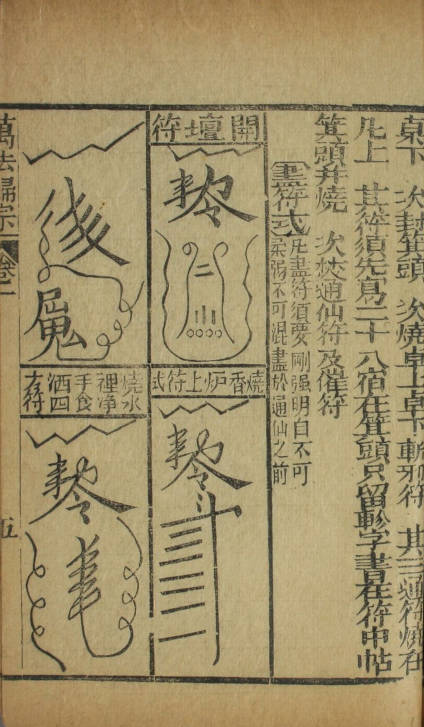 桌下 次封箕頭 次燒桌上桌下斬邪符 其三道符燒在
凡上 其符須先寫二十八宿在箕頭只留軫字書在符中帖
箕頭并燒 次焚通仙符及催符
畫符式
凡畫符須要剛强明白不可
柔弱不可混畫於通仙之前
開壇符
燒香炉上符式
燒水
裡淨
手食
洒四
方符
萬法歸宗
卷一
五